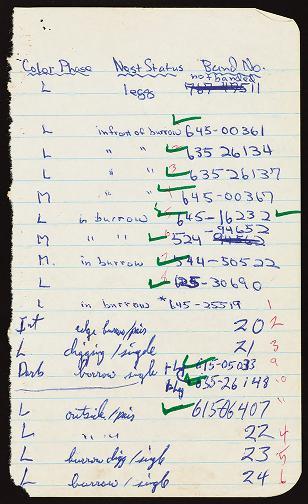 Color Phase Nest Status Band No.
not banded
L 1 egg 767-49511
L in front of burrow 645-00361
L " " 635 26134
L " " 635-26137
M " " 645-00367
L in burrow 645-16232
-94652
M " " 524
M. in burrow 544-50522
L 625-30690
L in burrow * 645-25519 1
Int edge burrow/pair 20 2
L digging/single 21 3
Dark burrow single 615-05033 9
635-26148 10
L outside/pair 615-06407 11
L " " " 22 4
L burrow digg/single 23 5
L burrow/single 24 6